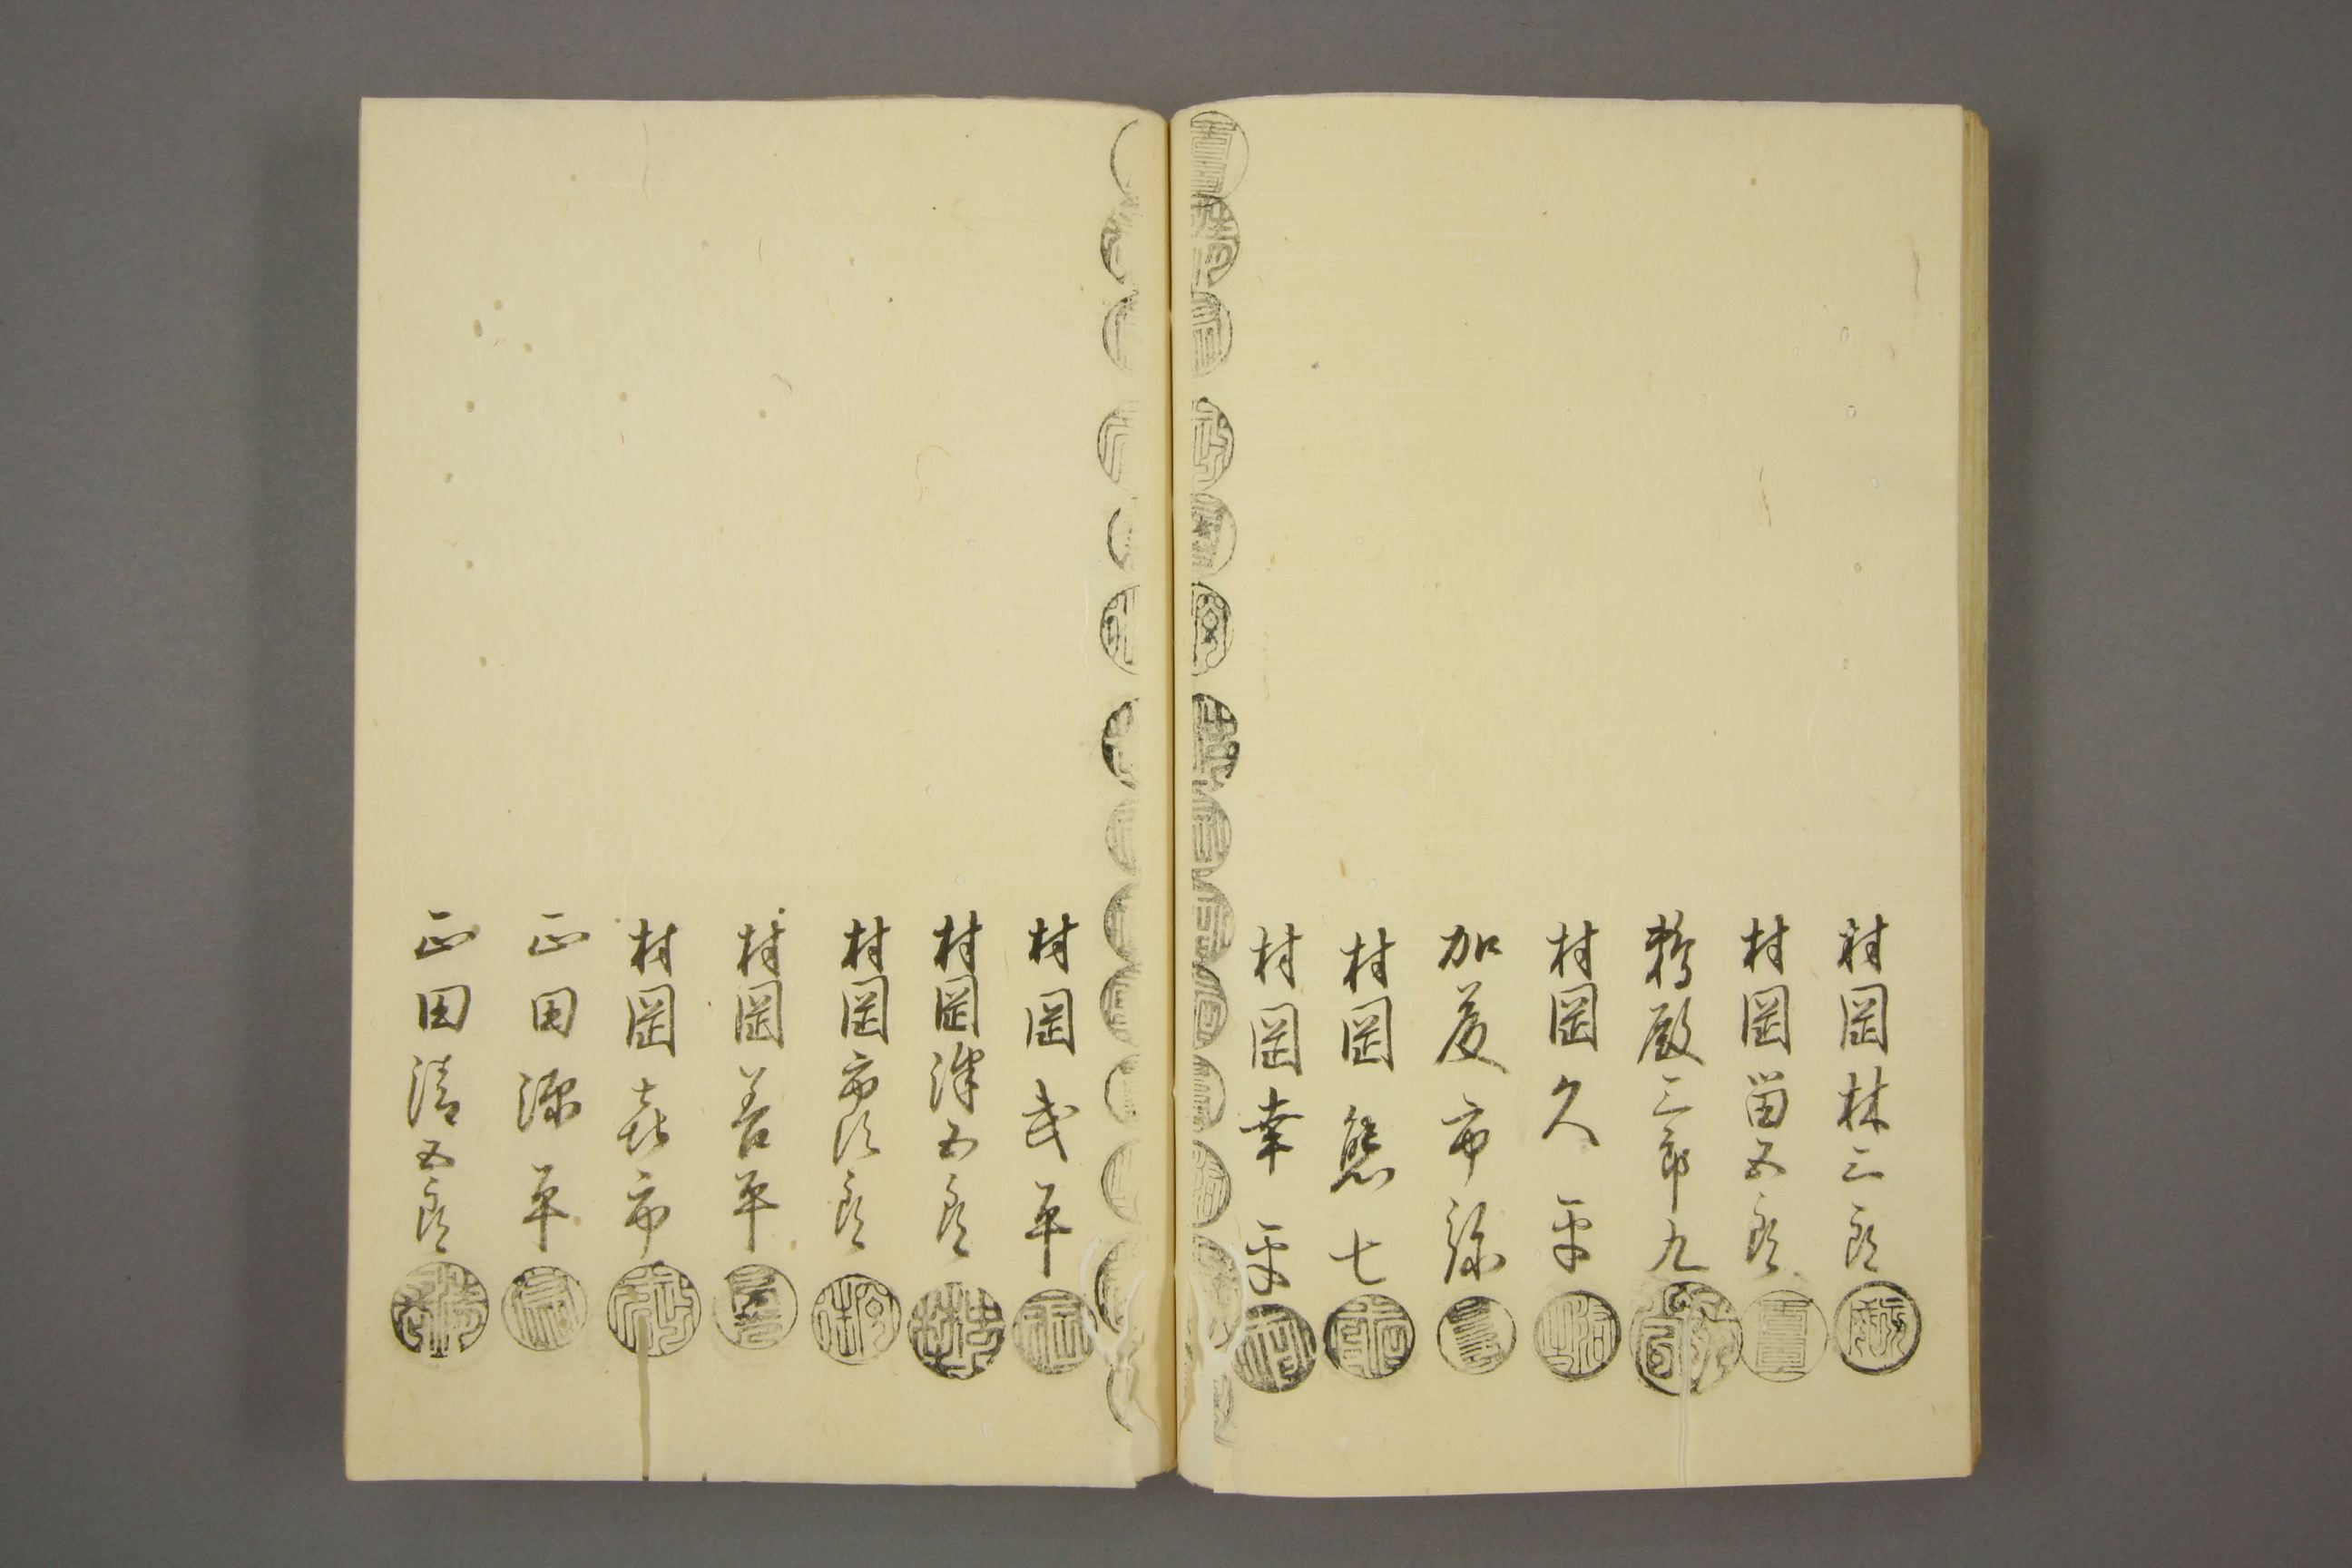 村岡林三郎
村岡留五郎
鵜殿三郎九
村岡久平
加茂市弥
村岡熊七
村岡幸平
村岡武平
村岡澤五郎
村岡市次郎
村岡善平
村岡㐂市
正田源平
正田清五郎